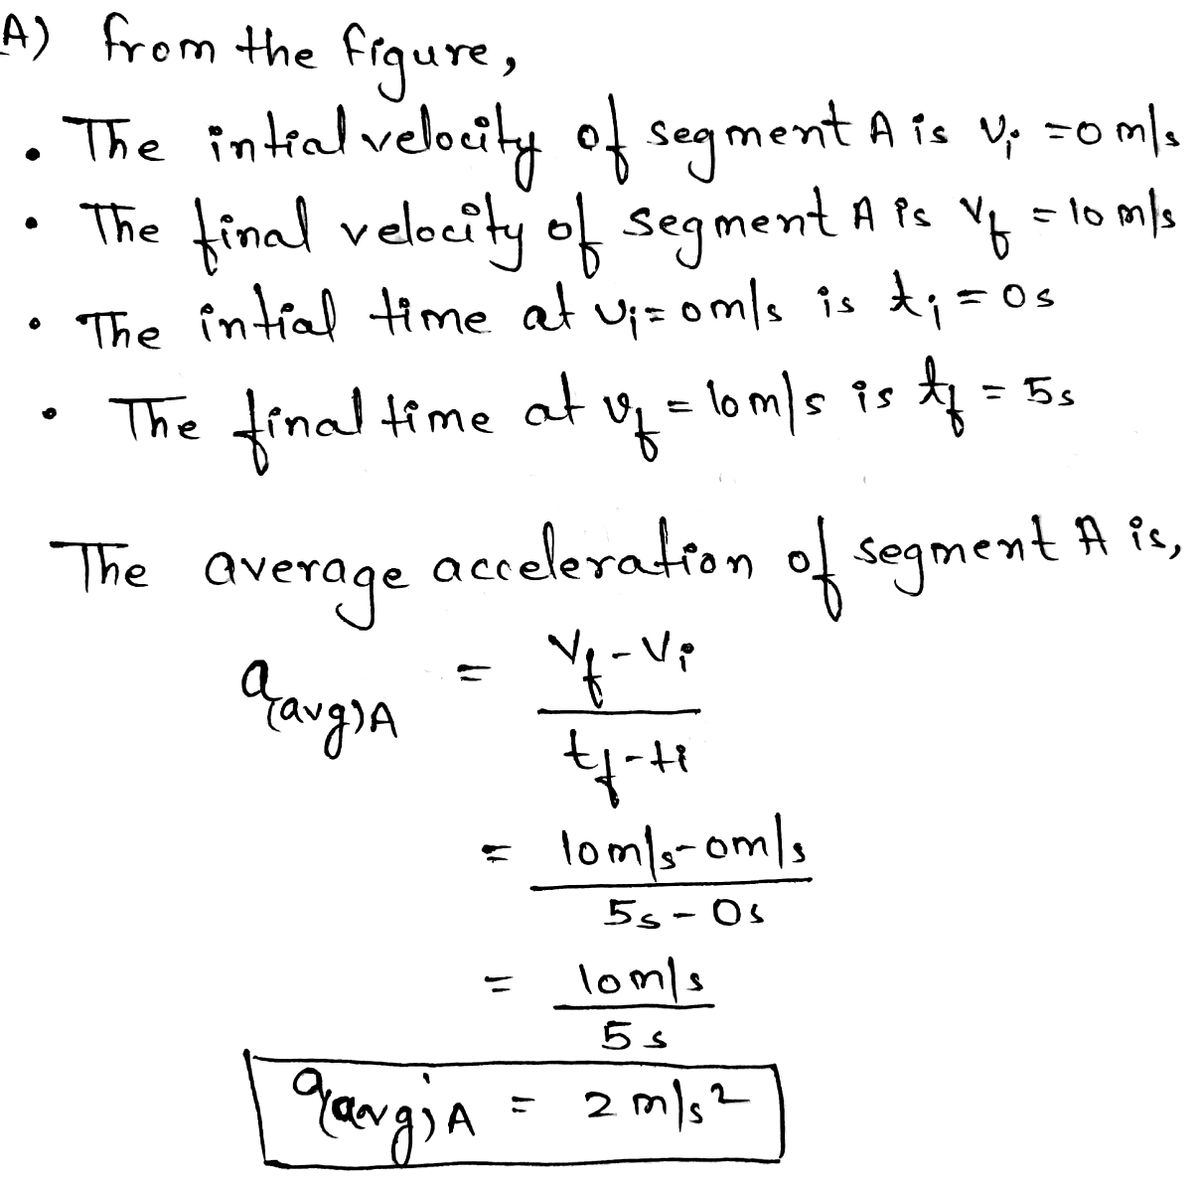 A) from the figure,
• The intial velocity of segment A is vi = 0 m/s
• The final velocity of segment A is vf = 10 m/s
• The intial time at vi = 0 m/s is ti = 0 s
• The final time at vf = 10 m/s is tf = 5s
The average acceleration of segment A is,
a(avg)A = vf - vi
tf - ti
= 10 m/s - 0 m/s
5s - 0s
= 10 m/s
5 s
a(avg)A = 2 m/s²